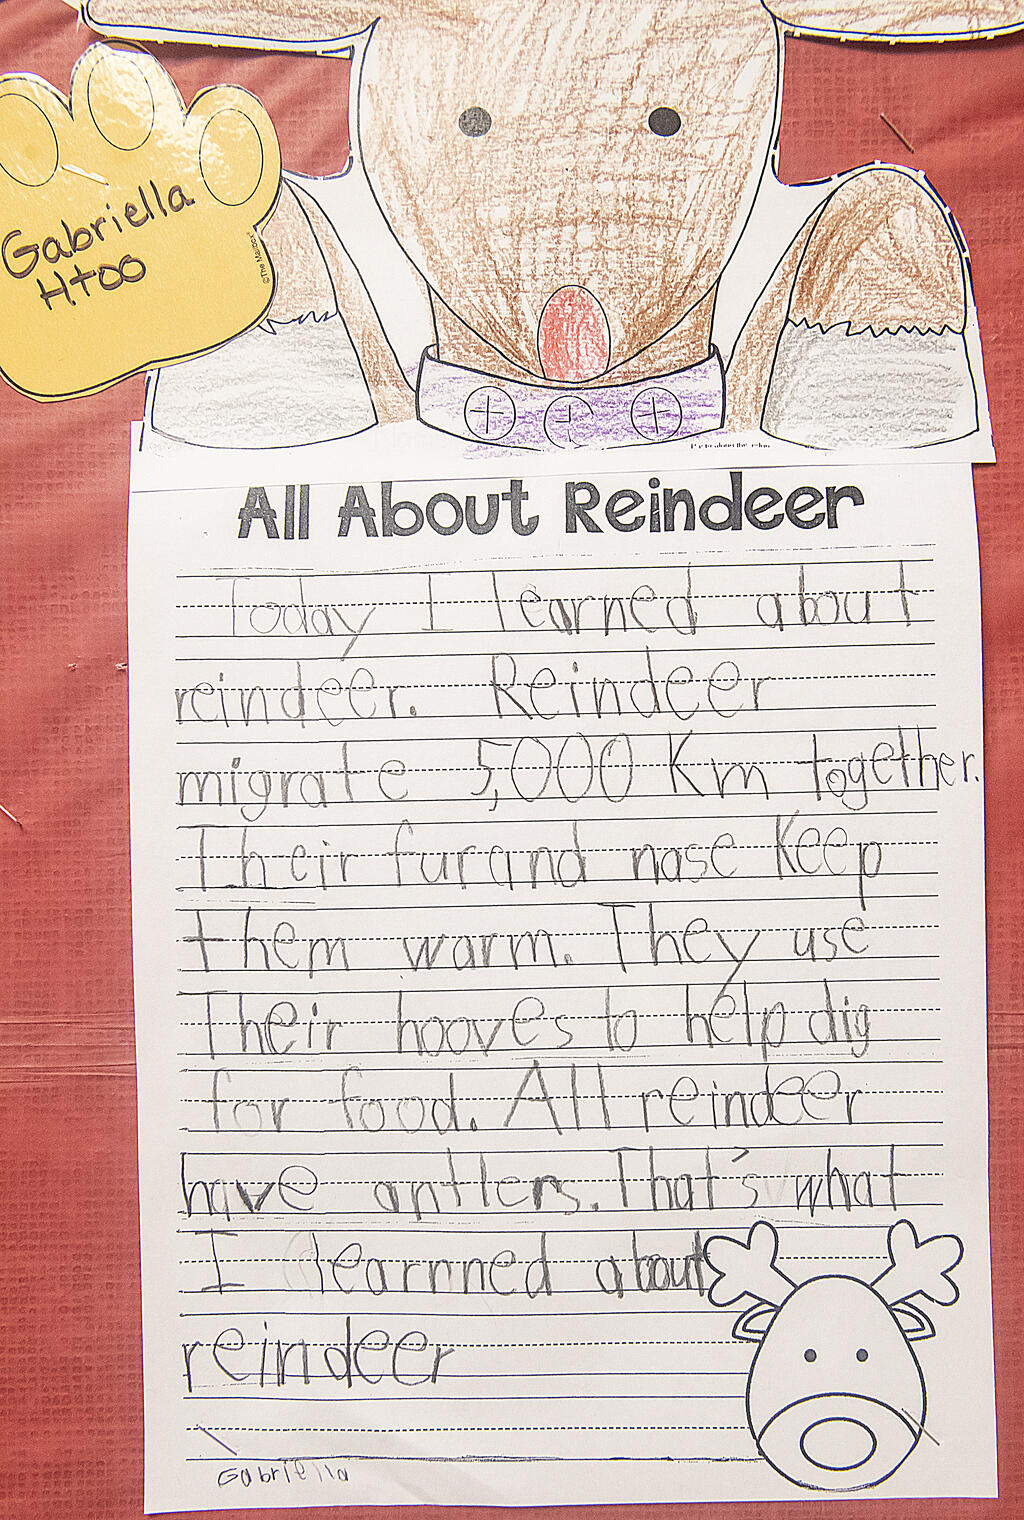 Gabriella
Htoo
All About Reindeer
Today I learned about
reindeer. Reindeer
migrate 5,000 Km together.
Their fur and nose Keep
them warm. They use
Their hooves to help dig
for food. All reindeer
have antlers. That's what
I learnned about
reindeer
Gabriella